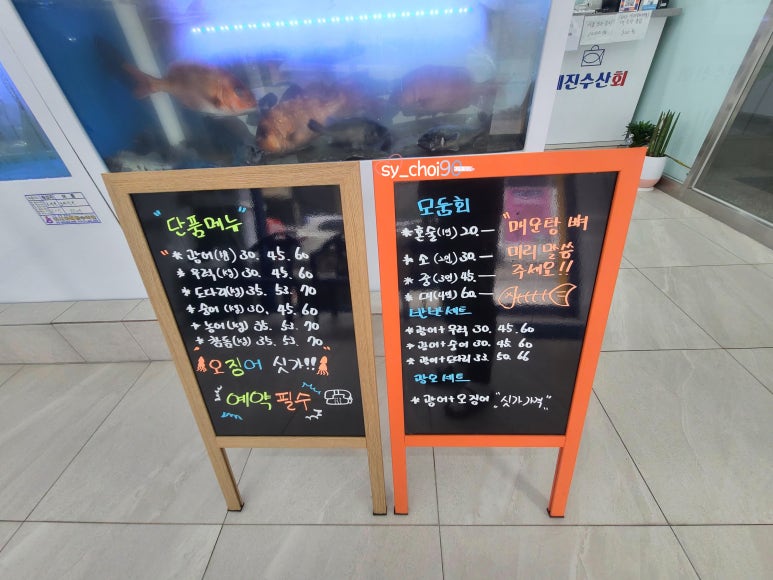 "단품메뉴"
* 광어(1병) 30. 45. 60
* 우럭(1병) 30. 45. 60
* 도다리(1병) 35. 53. 70
* 숭어(1병) 30. 45. 60
* 농어(1병) 35. 53. 70
* 참돔(1병) 35. 53. 70
오징어 싯가!!
예약 필수
sy_choi9
모둠회
* 혼술(1명) 20 —
* 소(2명) 30 —
* 중(3명) 45 —
* 대(4명) 60 —
"매운탕 뼈
미리 말씀
주세요!!
반반세트
* 광어+우럭 30. 45. 60
* 광어+숭어 30. 45. 60
* 광어+도다리 33. 50. 66
광오세트
* 광어+오징어 "싯가가격"
진수산회